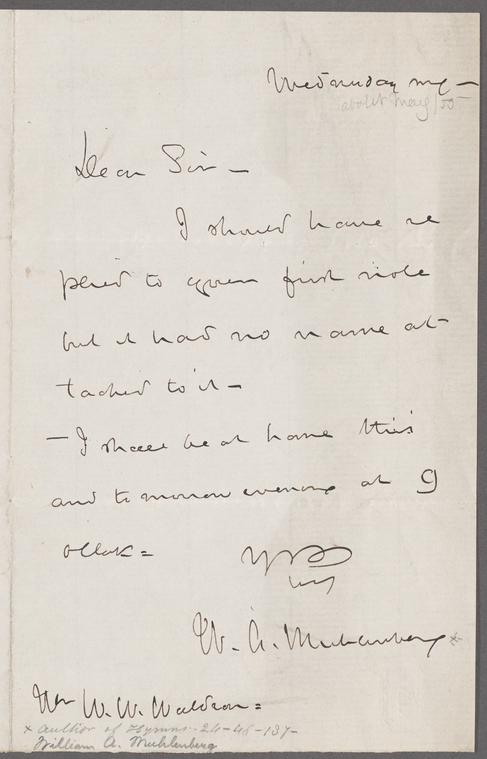 Wednesday mg —
about May / 55
Dear Sir —
I should have re
plied to your first note
but it had no name at-
tached to it —
— I shall be at home this
and tomorrow evening at 9
oClock =
W. A. Muhlenberg ×
W. W. Waldron =
× author of Hymns - 24-46-137-
William A. Muhlenberg